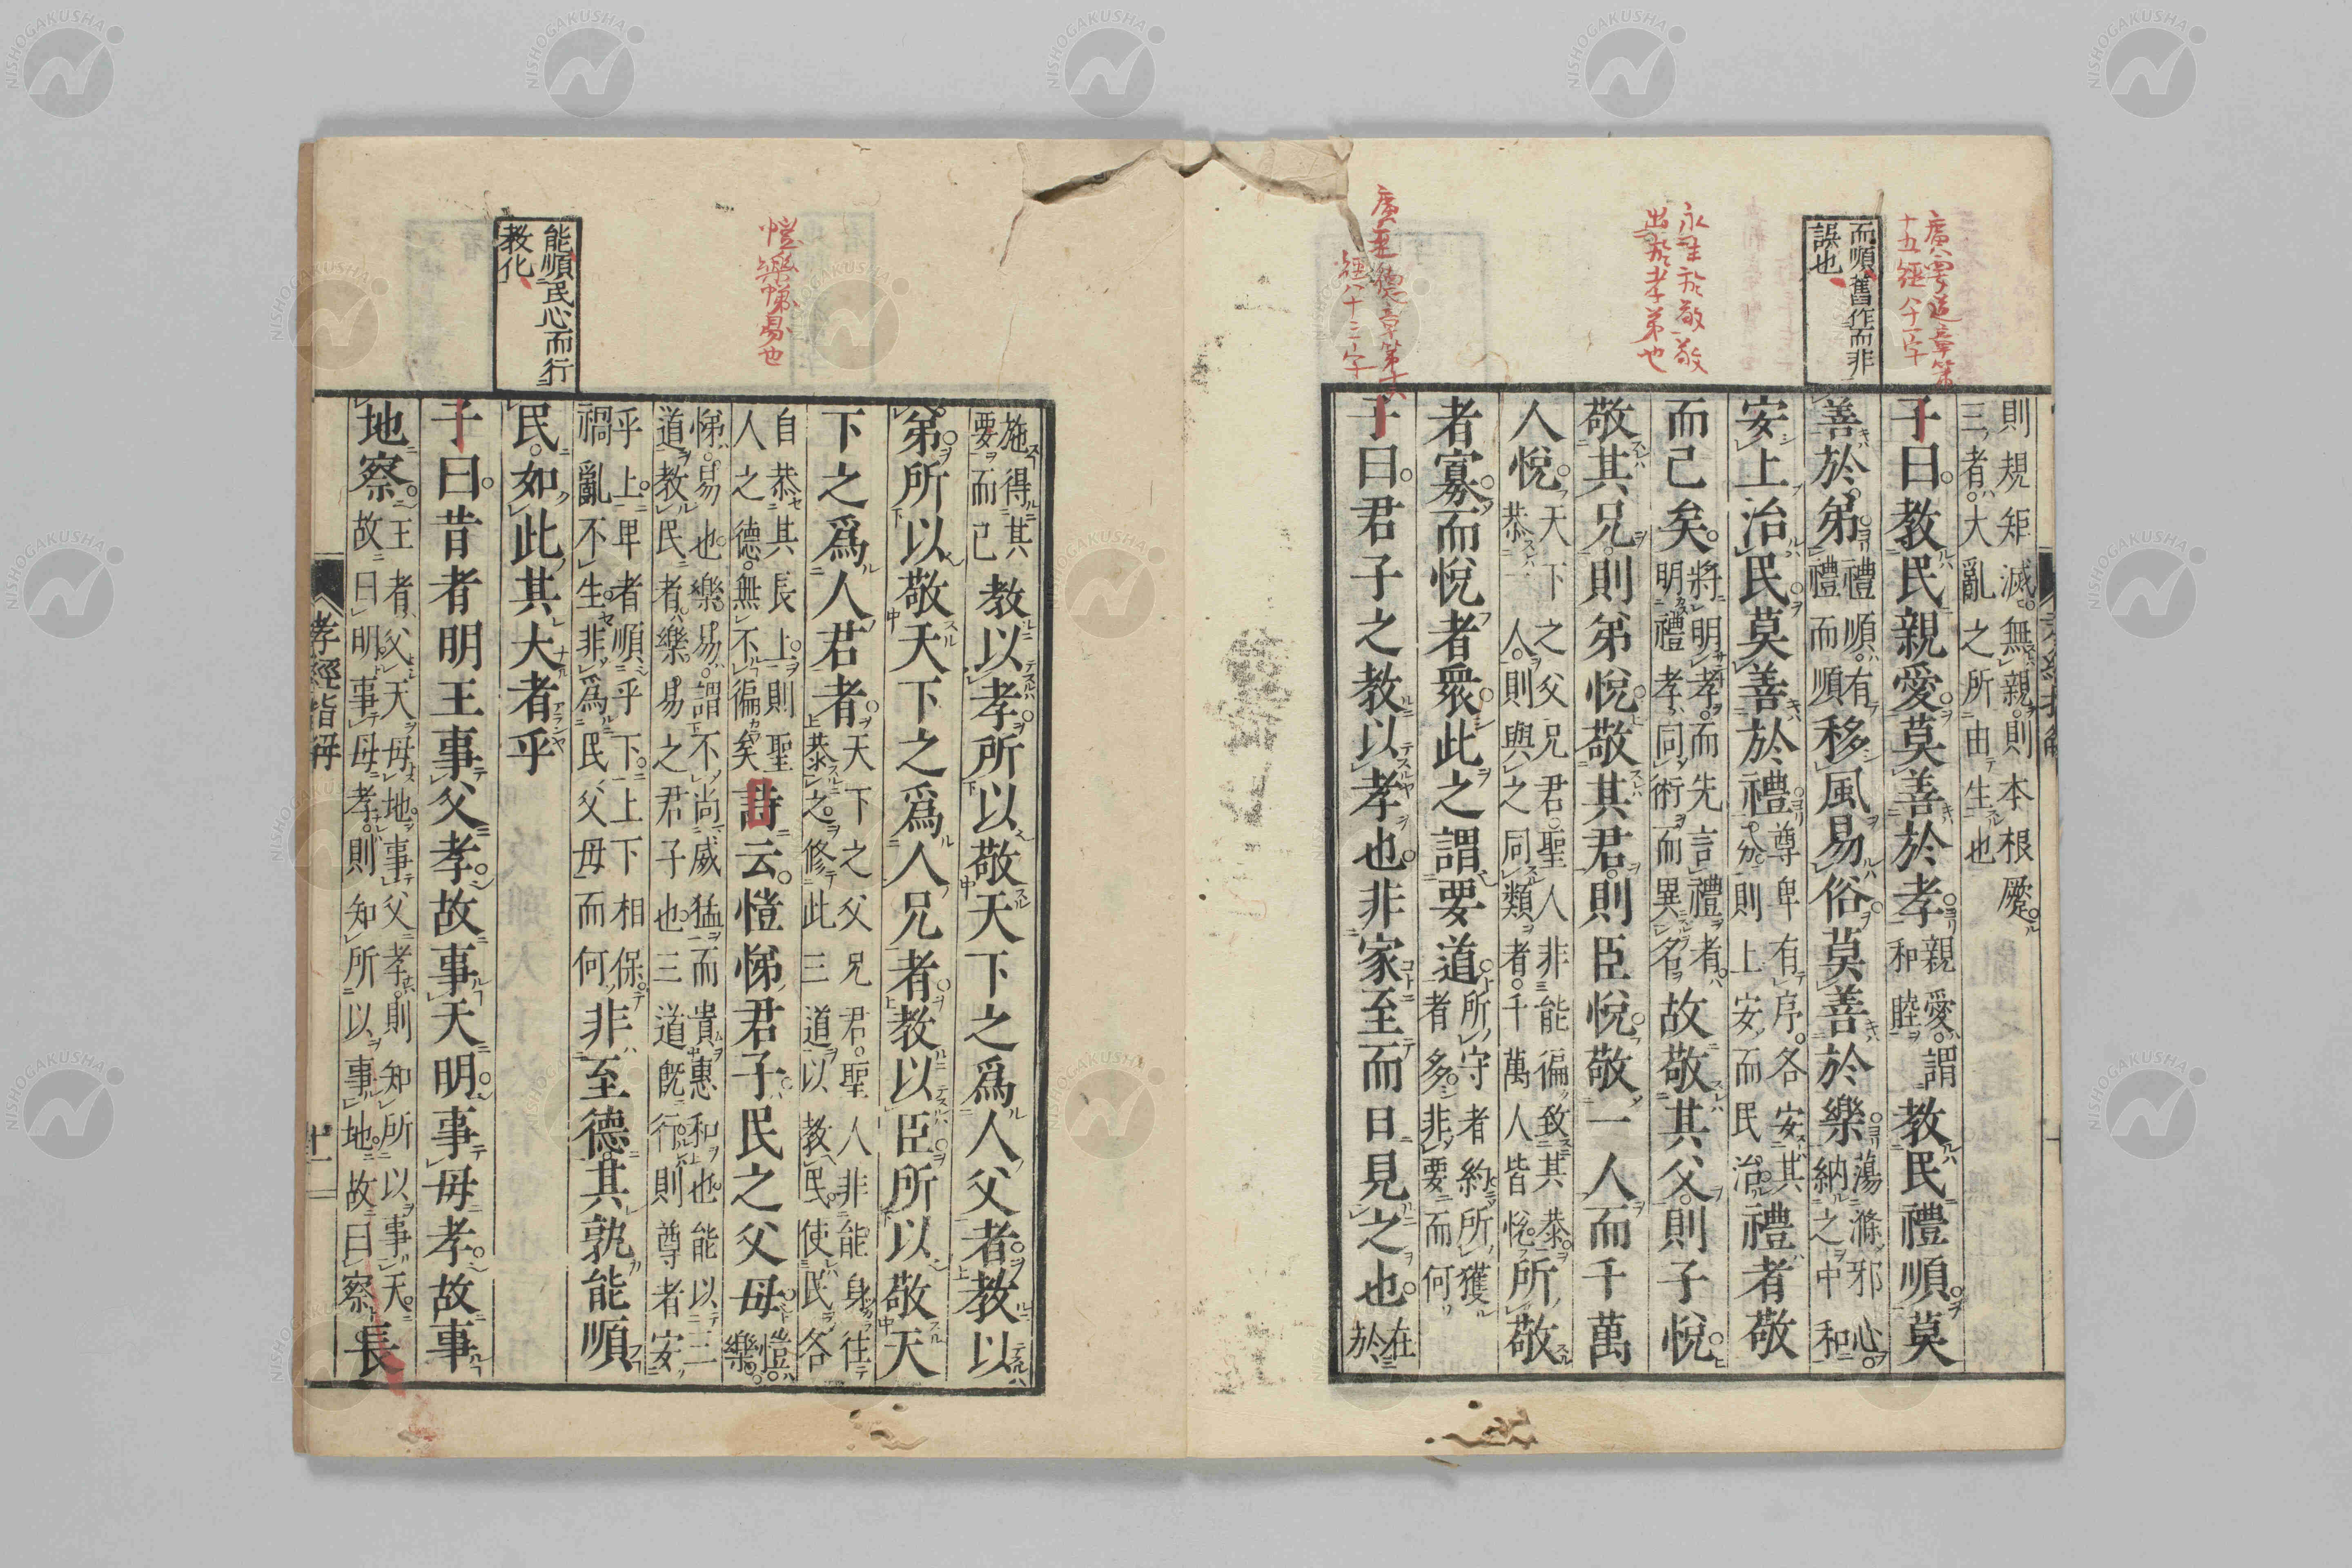 廣要道章第
十五經八十一字
而順舊作而非
誤也
永生於敬敬
出於孝弟也
廣至德章第十六
經八十三字
則規矩滅無親則本根蹷
三者大亂之所由生也
子曰教民親愛莫善於孝親愛謂和睦教民禮順莫
善於弟禮順有禮而順移風易俗莫善於樂蕩滌邪心納之中和
安上治民莫善於禮尊卑有序各安其分則上安而民治禮者敬
而已矣將明孝而先言禮者明禮孝同術而異名故敬其父則子悅
敬其兄則弟悅敬其君則臣悅敬一人而千萬
人悅天下之父兄君聖人非能徧致其恭恭一人則與之同類者千萬人皆悅所敬
者寡而悅者衆此之謂要道所守者約所獲者多非要而何
子曰君子之教以孝也非家至而日見之也在於
愷樂悌易也
能順民心而行
教化
施得其要而已教以孝所以敬天下之爲人父者教以
弟所以敬天下之爲人兄者教以臣所以敬天
下之爲人君者天下之父兄君聖人非能身往恭之修此三道以教民使民各
自恭其長上則聖人之德無不徧矣詩云愷悌君子民之父母愷樂
悌易也樂易謂不尚威猛而貴惠和也能以三道教民者樂易之君子也三道既行則尊者安
乎上卑者順乎下上下相保禍亂不生非爲民父母而何非至德其孰能順
民如此其大者乎
子曰昔者明王事父孝故事天明事母孝故事
地察王者父天母地事父孝則知所以事天故曰明事母孝則知所以事地故曰察長
孝經指解
十一